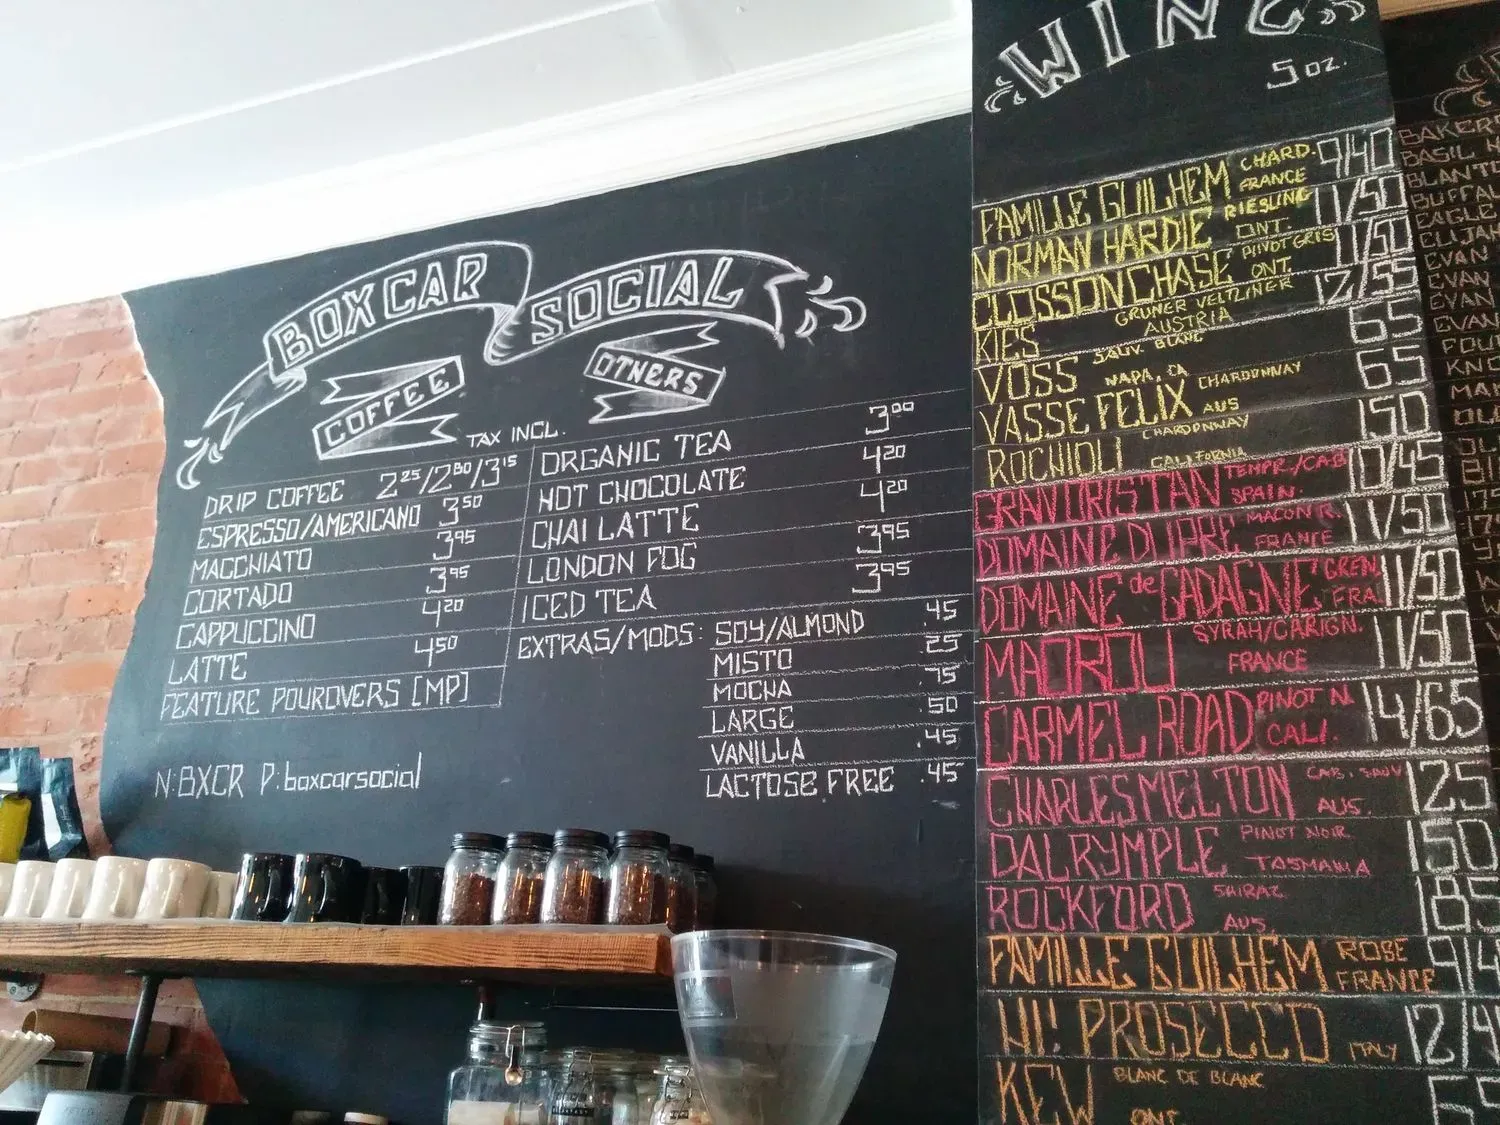 BOXCAR SOCIAL
COFFEE
TAX INCL.
DRIP COFFEE 2²⁵/2⁸⁰/3¹⁵
ESPRESSO/AMERICANO 3⁵⁰
MACCHIATO 3⁹⁵
CORTADO 3⁹⁵
CAPPUCCINO 4²⁰
LATTE 4⁵⁰
FEATURE POUROVERS [MP]
N:BXCR P:boxcarsocial
OTHERS
ORGANIC TEA 3⁰⁰
HOT CHOCOLATE 4²⁰
CHAI LATTE 4²⁰
LONDON FOG 3⁹⁵
ICED TEA 3⁹⁵
EXTRAS/MODS: SOY/ALMOND .45
MISTO .25
MOCHA .75
LARGE .50
VANILLA .45
LACTOSE FREE .45
WINE
5 oz.
FAMILLE GUILHEM CHARD. FRANCE 9/40
NORMAN HARDIE RIESLING ONT. 11/50
CLOSSON CHASE PINOT GRIS ONT. 11/50
KIES GRUNER VELTLINER AUSTRIA 12/55
VOSS SAUV. BLANC NAPA, CA 65
VASSE FELIX CHARDONNAY AUS 65
ROCHIOLI CHARDONNAY CALIFORNIA 150
GRAN ORISTAN TEMPR./CAB SPAIN. 10/45
DOMAINE DUPRE MACON R. FRANCE 11/50
DOMAINE de GADAGNE GREN. FRA. 11/50
MAOROU SYRAH/CARIGN. FRANCE 11/50
CARMEL ROAD PINOT N. CALI. 14/65
CHARLES MELTON CAB. SAUV AUS. 125
DALRYMPLE PINOT NOIR TASMANIA 150
ROCKFORD SHIRAZ AUS. 185
FAMILLE GUILHEM ROSE FRANCE 9/4
HI! PROSECCO ITALY 12/
KEW BLANC DE BLANC ONT
BAKER
BASIL
BLANT
BUFFAL
EAGLE
ELIJAH
EVAN
EVAN
EVAN
EVAN
FOUR
KNO